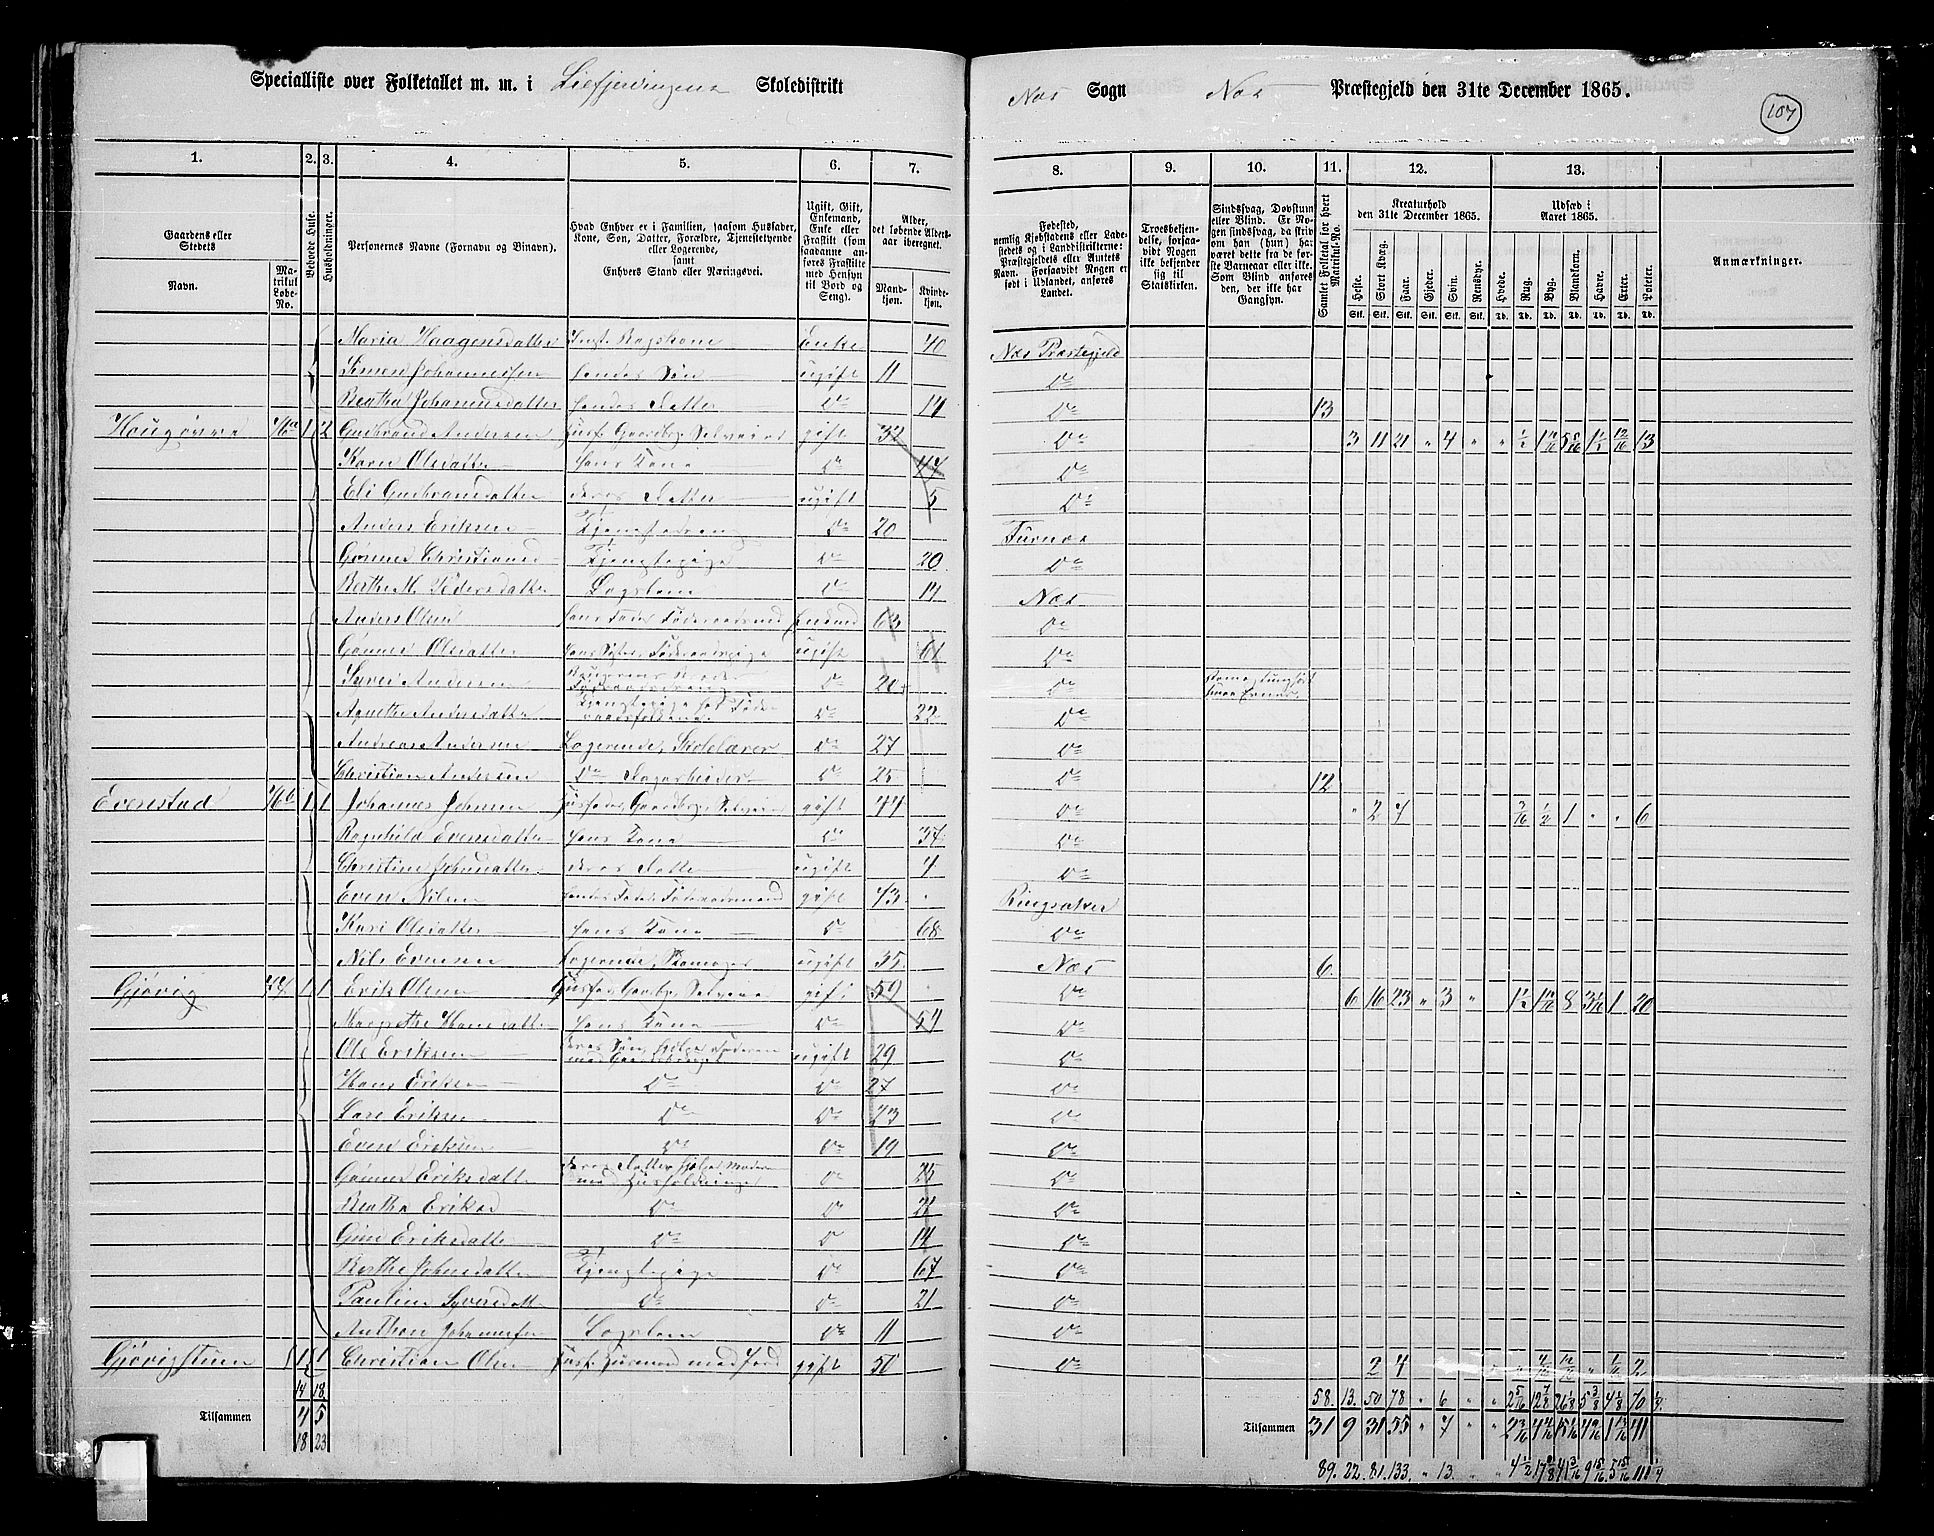 Specialliste over Folketallet m. m. i Liefjerdingens Skoledistrikt
Næs Sogn Næs Præstegjeld den 31te December 1865.
107
1. 2. 3. 4. 5. 6. 7. 8. 9. 10. 11. 12. 13.
Gaardens eller Stedets
Navn.
Matrikul Løbe-No.
Beboede Huse.
Husholdninger.
Personernes Navne (Fornavn og Binavn).
Hvad Enhver er i Familien, saasom Husfader, Kone, Søn, Datter, Forældre, Tjenestetyende eller Logerende, samt Enhvers Stand eller Næringsvei.
Ugift, Gift, Enkemand, Enke eller Fraskilt (som saadanne anføres Fraskilte med Hensyn til Bord og Seng).
Alder, det løbende Alders-aar iberegnet.
Mandkjøn. Kvindekjøn.
Fødested, nemlig Kjøbstadens eller Ladestedets og i Landdistrikterne: Præstegjeldets eller Amtets Navn. Forsaavidt Nogen er født i Udlandet, anføres Landet.
Troesbekjendelse, forsaavidt Nogen ikke bekjender sig til Statskirken.
Sindssvag, Døvstum eller Blind. Er Nogen sindssvag, da skrives om han (hun) har været dette fra de første Barneaar eller ikke. Som Blind anføres den, der ikke har Gangsyn.
Samlet Folketal for hvert Matrikul-No.
Kreaturhold den 31te December 1865.
Heste. Stort Kvæg. Faar. Gjeder. Svin. Rensdyr.
Udsæd i Aaret 1865.
Hvede. Rug. Byg. Blandkorn. Havre. Erter. Poteter.
Anmærkninger.
Maria Haagensdatter Inst. Enke 40 Næs Præstegjeld
Simen Johannessen hendes Søn ugift 11 Do
Berthe Johannesdatter hendes Datter Do 14 Do 13
Hougøvre 76a 1 2 Gudbrand Andersen Husf. Gaardbr. Selveier gift 32 Do 3 11 21 " 4 " " 13
Karn Olsdatter hans Kone Do 44 Do
Eli Gudbrandsdatter deres Datter ugift 5 Do
Anders Eriksen Tjenestedreng Do 20 Furnæs
Gunner Christiansd Tjenestepige Do 20 Do
Berthe M. Pedersdatter Lægslem Do 14 Næs
Anders Olsen hans Fader Føderaadsmand Enkemd 63 Do
Gunner Olsdatter hans Søster, ugift 61 Do
Syver Andersen Do 20 Do
Agnethe Andersdatter Tjenestepige hos Føderaadsfolkene. Do 22 Do
Andreas Andersen Logerende, Skolelærer Do 27 Do
Christian Andersen Do Dagarbeider Do 25 Do 12
Evenstad 76b 1 1 Johannes Johnsen Husfader, Gaardbr. Selveier gift 44 Do " 2 7 1 " " 6
Ragnhild Evensdatter hans Kone Do 37 Do
Christine Johnsdatter deres Datter ugift 4 Do
Even Nilsen hendes Fader Føderaadsmand gift 73 Ringsaker
Kari Olsdatter hans Kone Do 68 Do
Nils Evensen Logerende, Skomager ugift 35 Næs 6
Gjøvig 77 1 1 Erik Olsen Husfar Gaardbr. Selveier gift 59 Do 6 16 23 " 3 " 8 1 20
Margrethe Hansdatter hans Kone Do 54 Do
Ole Eriksen deres Søn, hjelper Faderen med Gaardsbruget ugift 29 Do
Hans Eriksen Do Do 27 Do
Lars Eriksen Do Do 23 Do
Even Eriksen Do Do 19 Do
Gunner Eriksdatter deres Datter hjelper Moderen med Husholdningen Do 25 Do
Berthe Eriksd Do Do 21 Do
Gine Eriksdatter Do Do 14 Do
Berthe Johnsdatter Tjenestepige Do 67 Do
Pauline Syversdatt Do Do 21 Do
Anthon Johannessen Lægslem Do 11 Do
Gjøvigstuen 1 1 Christian Olsen Husf. Husmand med Jord gift 50 Do 2 4 2
14 18 58. 13. 50 78 " 6 " " 70
Tilsammen 4 5 Tilsammen 31 9 31 55 " 7 " "
18 23 89. 22. 81. 133. " 13. " "